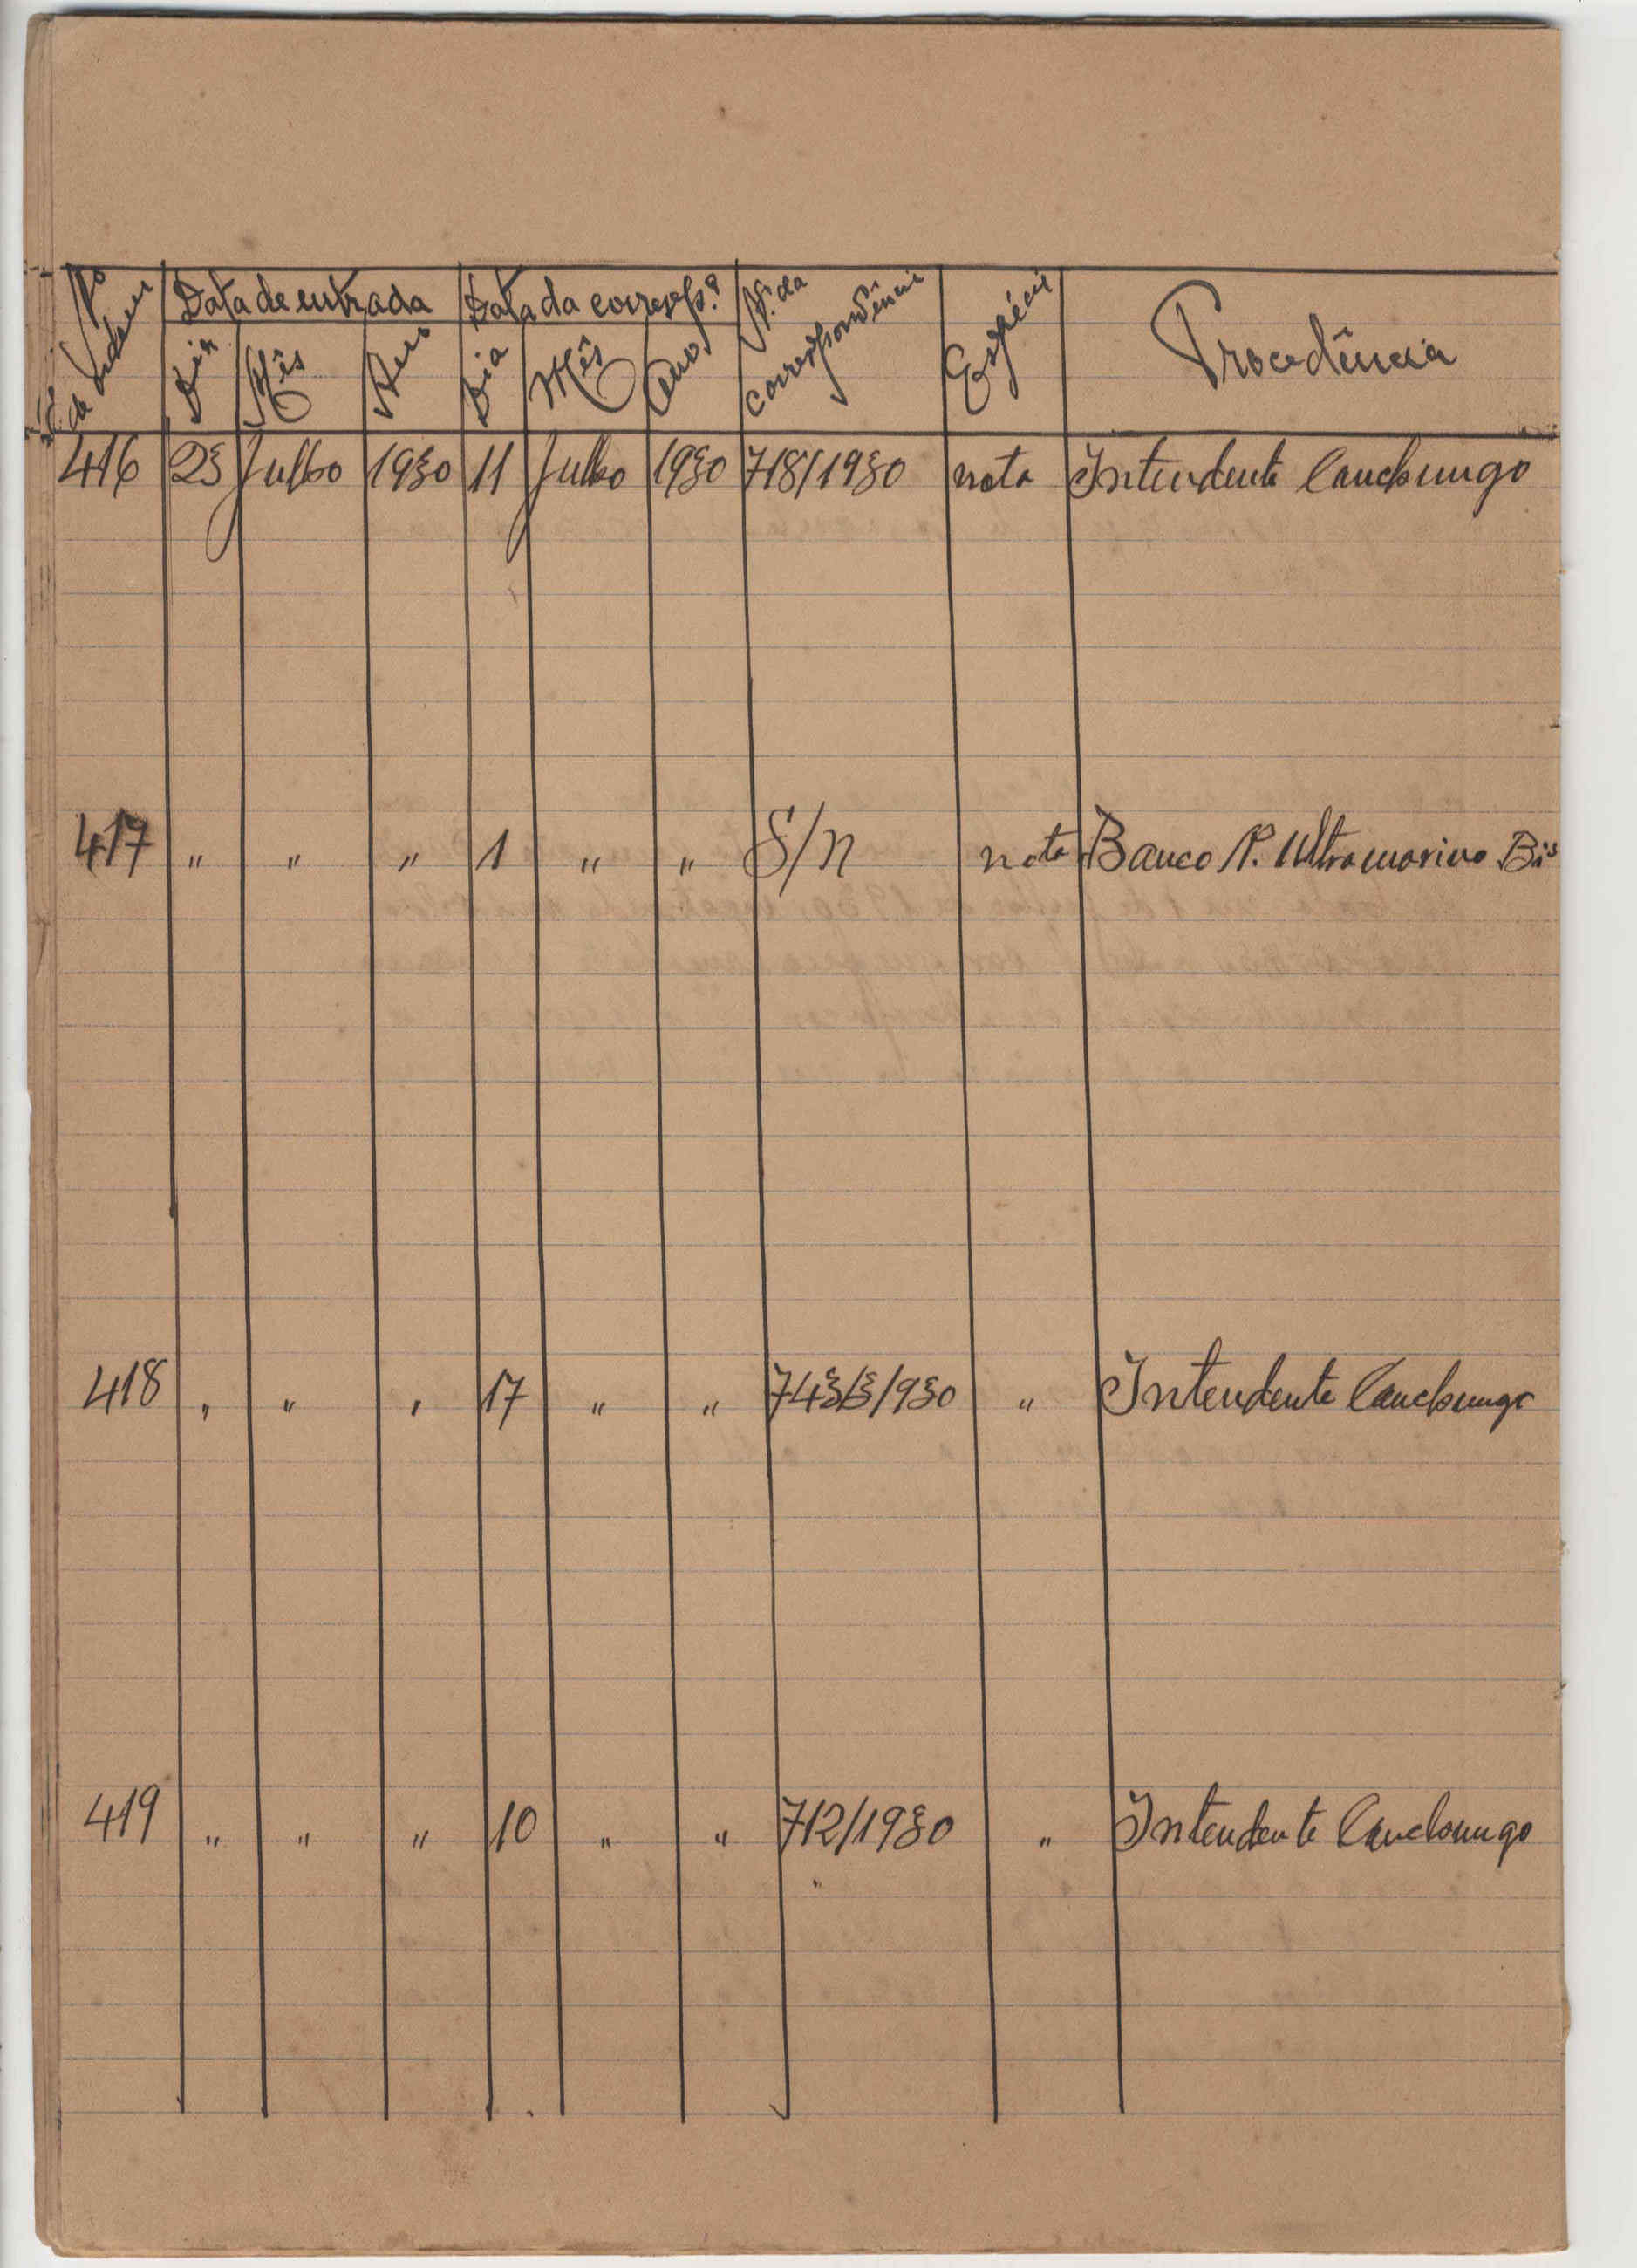 Nº de ordem | Data de entrada | Data da corresp.ª | Nº da correspondência | Espécie | Procedência
Dia | Mês | Ano | Dia | Mês | Ano
416 | 23 | Julho | 1930 | 11 | Julho | 1930 | 718/1930 | nota | Intendente Canchungo
417 | " | " | " | 1 | " | " | S/n | nota | Banco N. Ultramarino Bis
418 | " | " | " | 17 | " | " | 743/3/930 | " | Intendente Canchungo
419 | " | " | " | 10 | " | " | 712/1930 | " | Intendente Canchungo